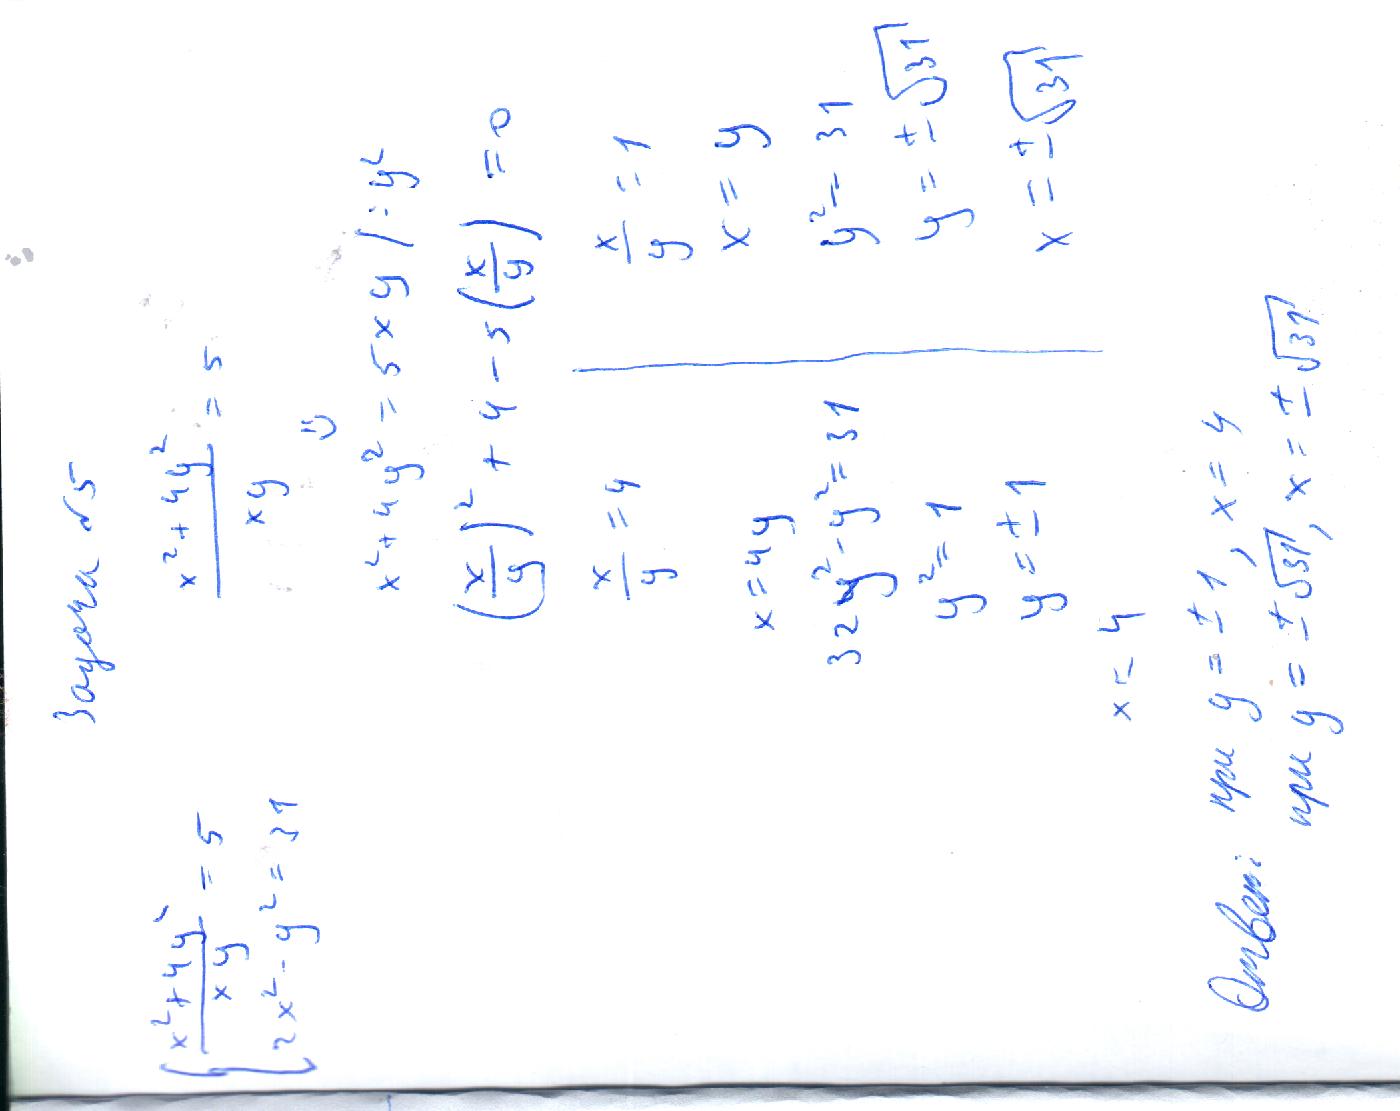 Задача №5
{ (x² + 4y²)/(xy) = 5
2x² - y² = 31
(x² + 4y²)/(xy) = 5
x² + 4y² = 5xy | : y²
(x/y)² + 4 - 5(x/y) = 0
x/y = 4
x = 4y
32y² - y² = 31
y² = 1
y = ± 1
x = 4
x/y = 1
x = y
y² = 31
y = ± √31
x = ± √31
Ответ: при y = ± 1, x = 4
при y = ± √31, x = ± √31